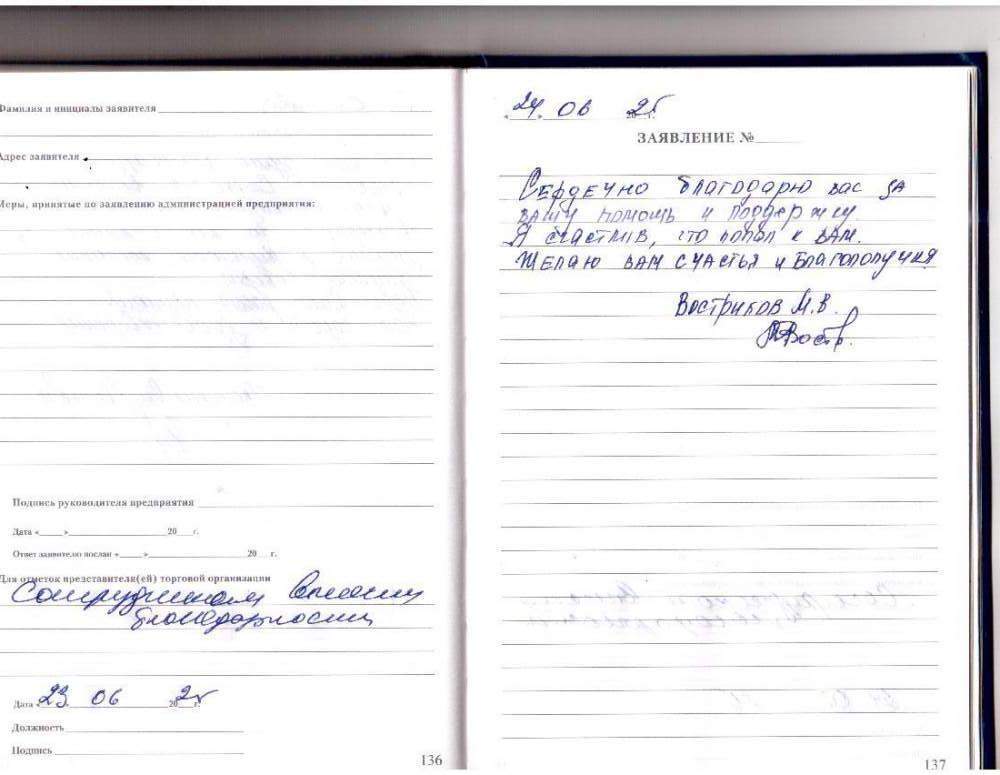 Фамилия и инициалы заявителя
Адрес заявителя
Меры, принятые по заявлению администрацией предприятия:
Подпись руководителя предприятия
Дата «____»____________20___г.
Ответ заявителю послан «____»____________20___г.
Для отметок представителя(ей) торговой организации
Сотрудникам
благодарность
Дата 23. 06 2025 г.
Должность
Подпись
136
24. 06 2025 г.
ЗАЯВЛЕНИЕ №
Сердечно благодарю вас за
вашу помощь и поддержку.
Я счастлив, что попал к вам.
Желаю вам счастья и благополучия
Востриков М.В.
Востр.
137